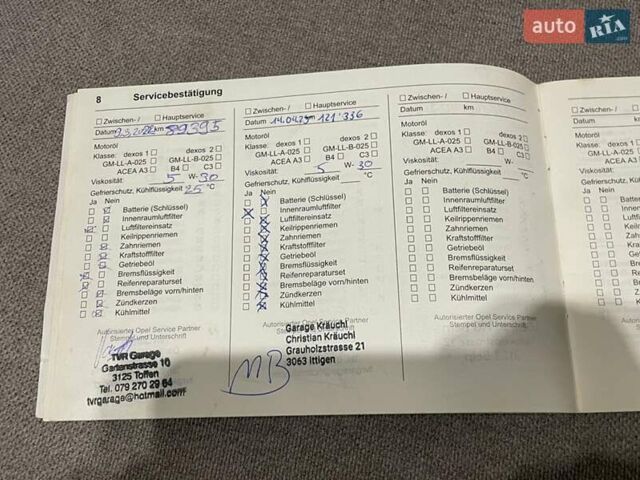 auto RIA.com
8 Servicebestätigung
Zwischen- / Hauptservice
Datum 9.3.2022 km 89395
Motoröl
Klasse: dexos 1 dexos 2
GM-LL-A-025 GM-LL-B-025
ACEA A3 B4 C3
Viskosität: 5 W-30
Gefrierschutz, Kühlflüssigkeit 25 °C
Ja Nein
Batterie (Schlüssel)
Innenraumluftfilter
Luftfiltereinsatz
Keilrippenriemen
Zahnriemen
Kraftstofffilter
Getriebeöl
Bremsflüssigkeit
Reifenreparaturset
Bremsbeläge vorn/hinten
Zündkerzen
Kühlmittel
Autorisierter Opel Service Partner
Stempel und Unterschrift
TVR Garage
Gartenstrasse 10
3125 Toffen
Tel. 079 270 29 64
tvrgarage@hotmail.com
Zwischen- / Hauptservice
Datum 14.04.25 km 121'336
Motoröl
Klasse: dexos 1 dexos 2
GM-LL-A-025 GM-LL-B-025
ACEA A3 B4 C3
Viskosität: 5 W-30
Gefrierschutz, Kühlflüssigkeit °C
Ja Nein
Batterie (Schlüssel)
Innenraumluftfilter
Luftfiltereinsatz
Keilrippenriemen
Zahnriemen
Kraftstofffilter
Getriebeöl
Bremsflüssigkeit
Reifenreparaturset
Bremsbeläge vorn/hinten
Zündkerzen
Kühlmittel
Autorisierter Opel Service Partner
Stempel und Unterschrift
Garage Kräuchi
Christian Kräuchi
Grauholzstrasse 21
3063 Ittigen
MB
Zwischen- / Hauptservice
Datum km
Motoröl
Klasse: dexos 1 dexos 2
GM-LL-A-025 GM-LL-B-025
ACEA A3 B4 C3
Viskosität: W-
Gefrierschutz, Kühlflüssigkeit °C
Ja Nein
Batterie (Schlüssel)
Innenraumluftfilter
Luftfiltereinsatz
Keilrippenriemen
Zahnriemen
Kraftstofffilter
Getriebeöl
Bremsflüssigkeit
Reifenreparaturset
Bremsbeläge vorn/hinten
Zündkerzen
Kühlmittel
Autorisierter Opel Service Partner
Stempel und Unterschrift